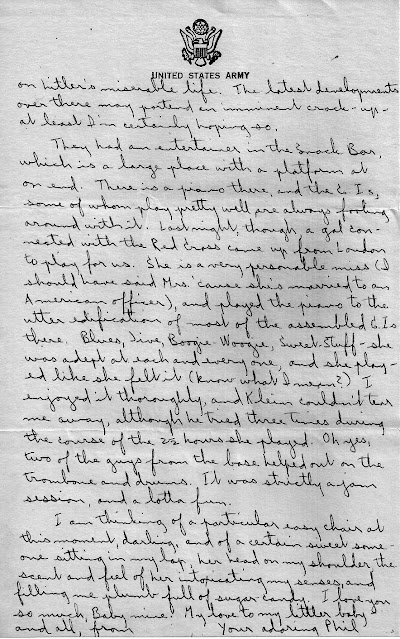 UNITED STATES ARMY
on hitler's miserable life. The latest developments
over there may portend an imminent crack-up -
at least I'm certainly hoping so.
They had an entertainer in the Snack Bar,
which is a large place with a platform at
on end. There is a piano there, and the G Is,
some of whom play pretty well are always fooling
around with it. Last night, though, a gal con-
nected with the Red Cross came up from London
to play for us. She is a very personable miss (I
should have said Mrs 'cause she's married to an
American officer), and played the piano to the
utter edification of most of the assembled G.Is
there. Blues, Jive, Boogie-Woogie, Sweet Stuff - she
was adept at each and every one, and she play-
ed like she felt it (know what I mean?) I
enjoyed it thoroughly, and Klein couldn't tear
me away, although he tried three times during
the course of the 2½ hours she played. Oh yes,
two of the guys from the base helped out on the
trombone and drums. It was strictly a jam
session, and a lotta fun.
I am thinking of a particular easy chair at
this moment, darling, and of a certain sweet some-
one sitting in my lap, her head on my shoulder, the
scent and feel of her intoxicating my senses, and
filling me plumb-full of sugar candy. I love you
so much, Baby mine! My love to my littler baby
and all, from Your adoring Phil